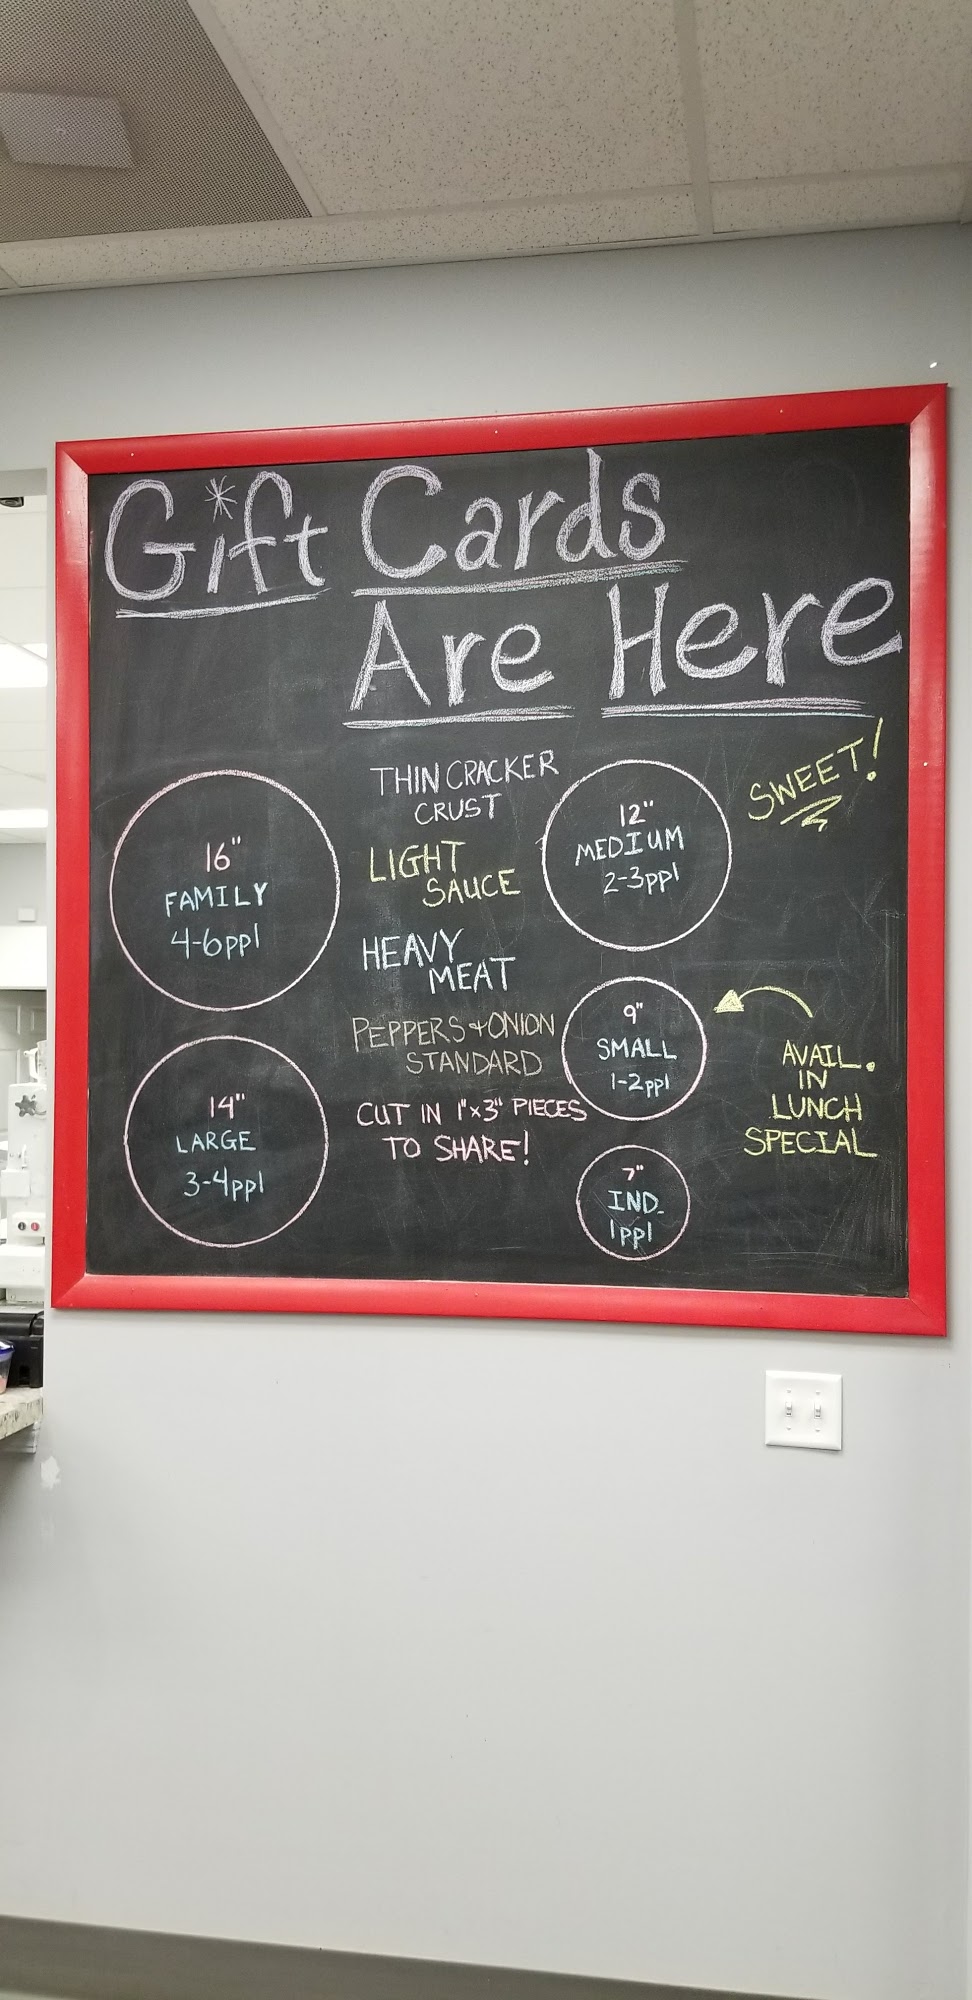 Gift Cards
Are Here
SWEET!
16"
FAMILY
4-6ppl
14"
LARGE
3-4ppl
THIN CRACKER
CRUST
LIGHT
SAUCE
HEAVY
MEAT
PEPPERS + ONION
STANDARD
CUT IN 1"x3" PIECES
TO SHARE!
12"
MEDIUM
2-3ppl
9"
SMALL
1-2ppl
7"
IND.
1ppl
AVAIL.
IN
LUNCH
SPECIAL